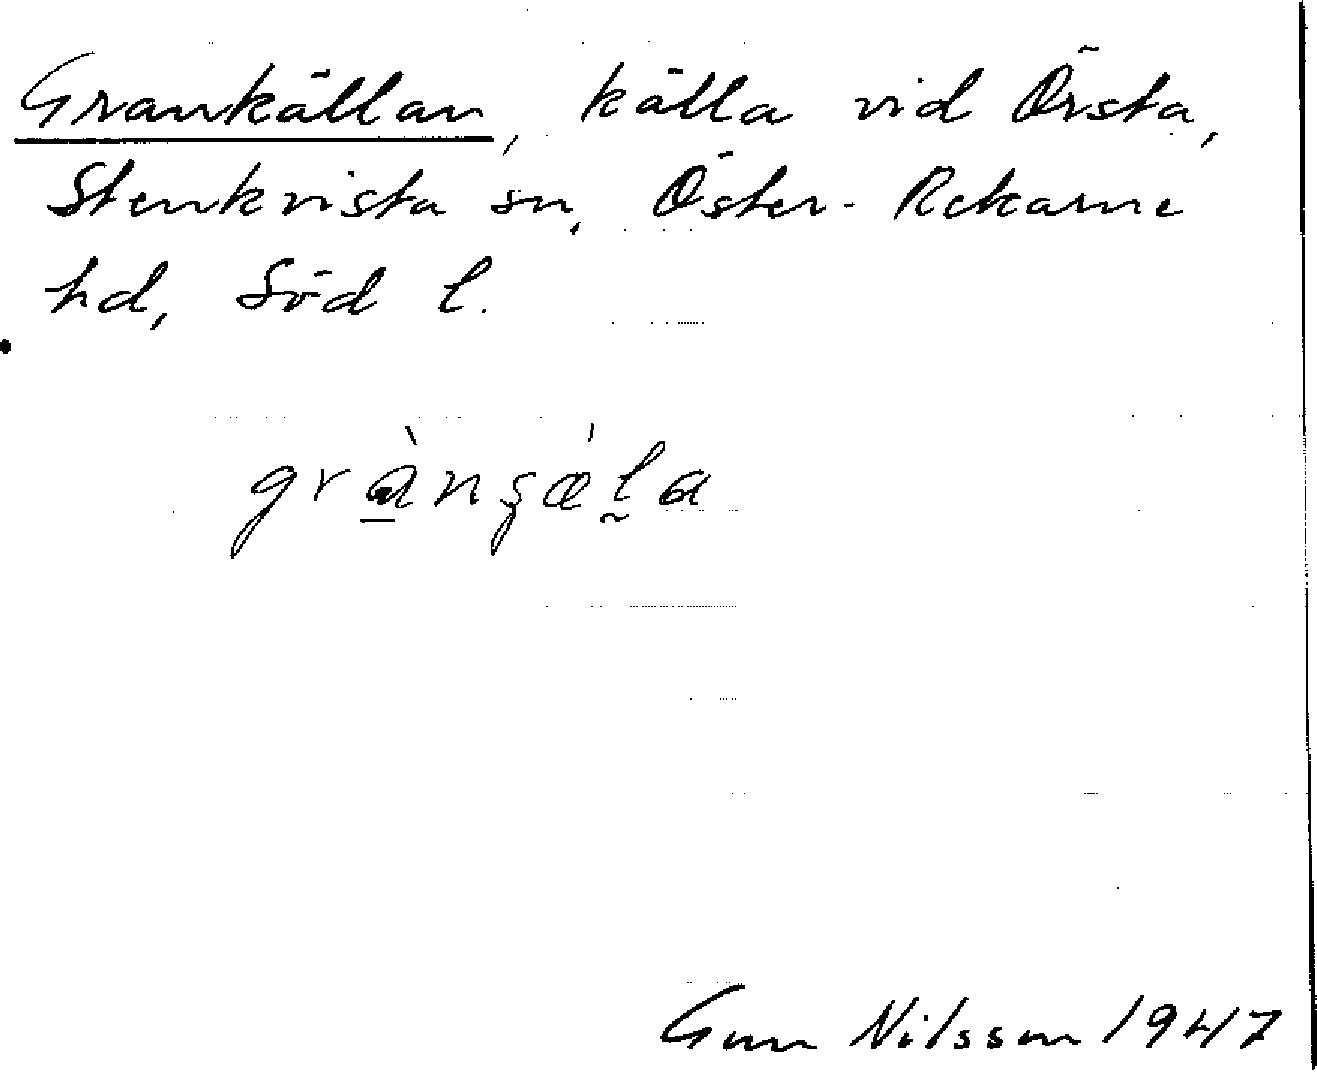 Grankällan, källa vid Örsta,
Stenkvista sn, Öster-Rekarne
hd, Söd l.
gràngǽla
Gun Nilsson 1947